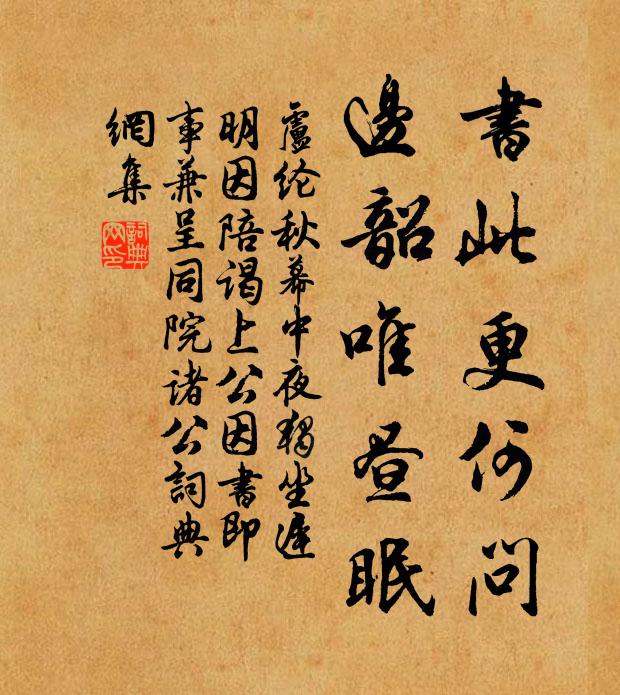 書此更何問
邊韶唯昼眠
盧纶秋幕中夜獨坐遲
明因陪谒上公因書即
事兼呈同院诸公詞典
網集
詞典網印